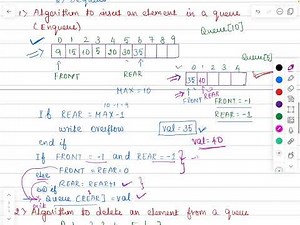 1) Algorithm to insert an element in a queue
(Enqueue)
Queue[10]
0 1 2 3 4 5 6 7 8 9
9 15 10 5 20 30 35
FRONT REAR
MAX = 10
10-1=9
Queue[5]
0 1 2 3 4
35 40
FRONT REAR
FRONT = -1
REAR = -1
If REAR = MAX-1
write overflow
val = 35
end if
val = 40
If FRONT = -1 and REAR = -1
FRONT = REAR = 0
else
REAR = REAR+1
end if
Queue [REAR] = val
exit
2) Algorithm to delete an element from a queue